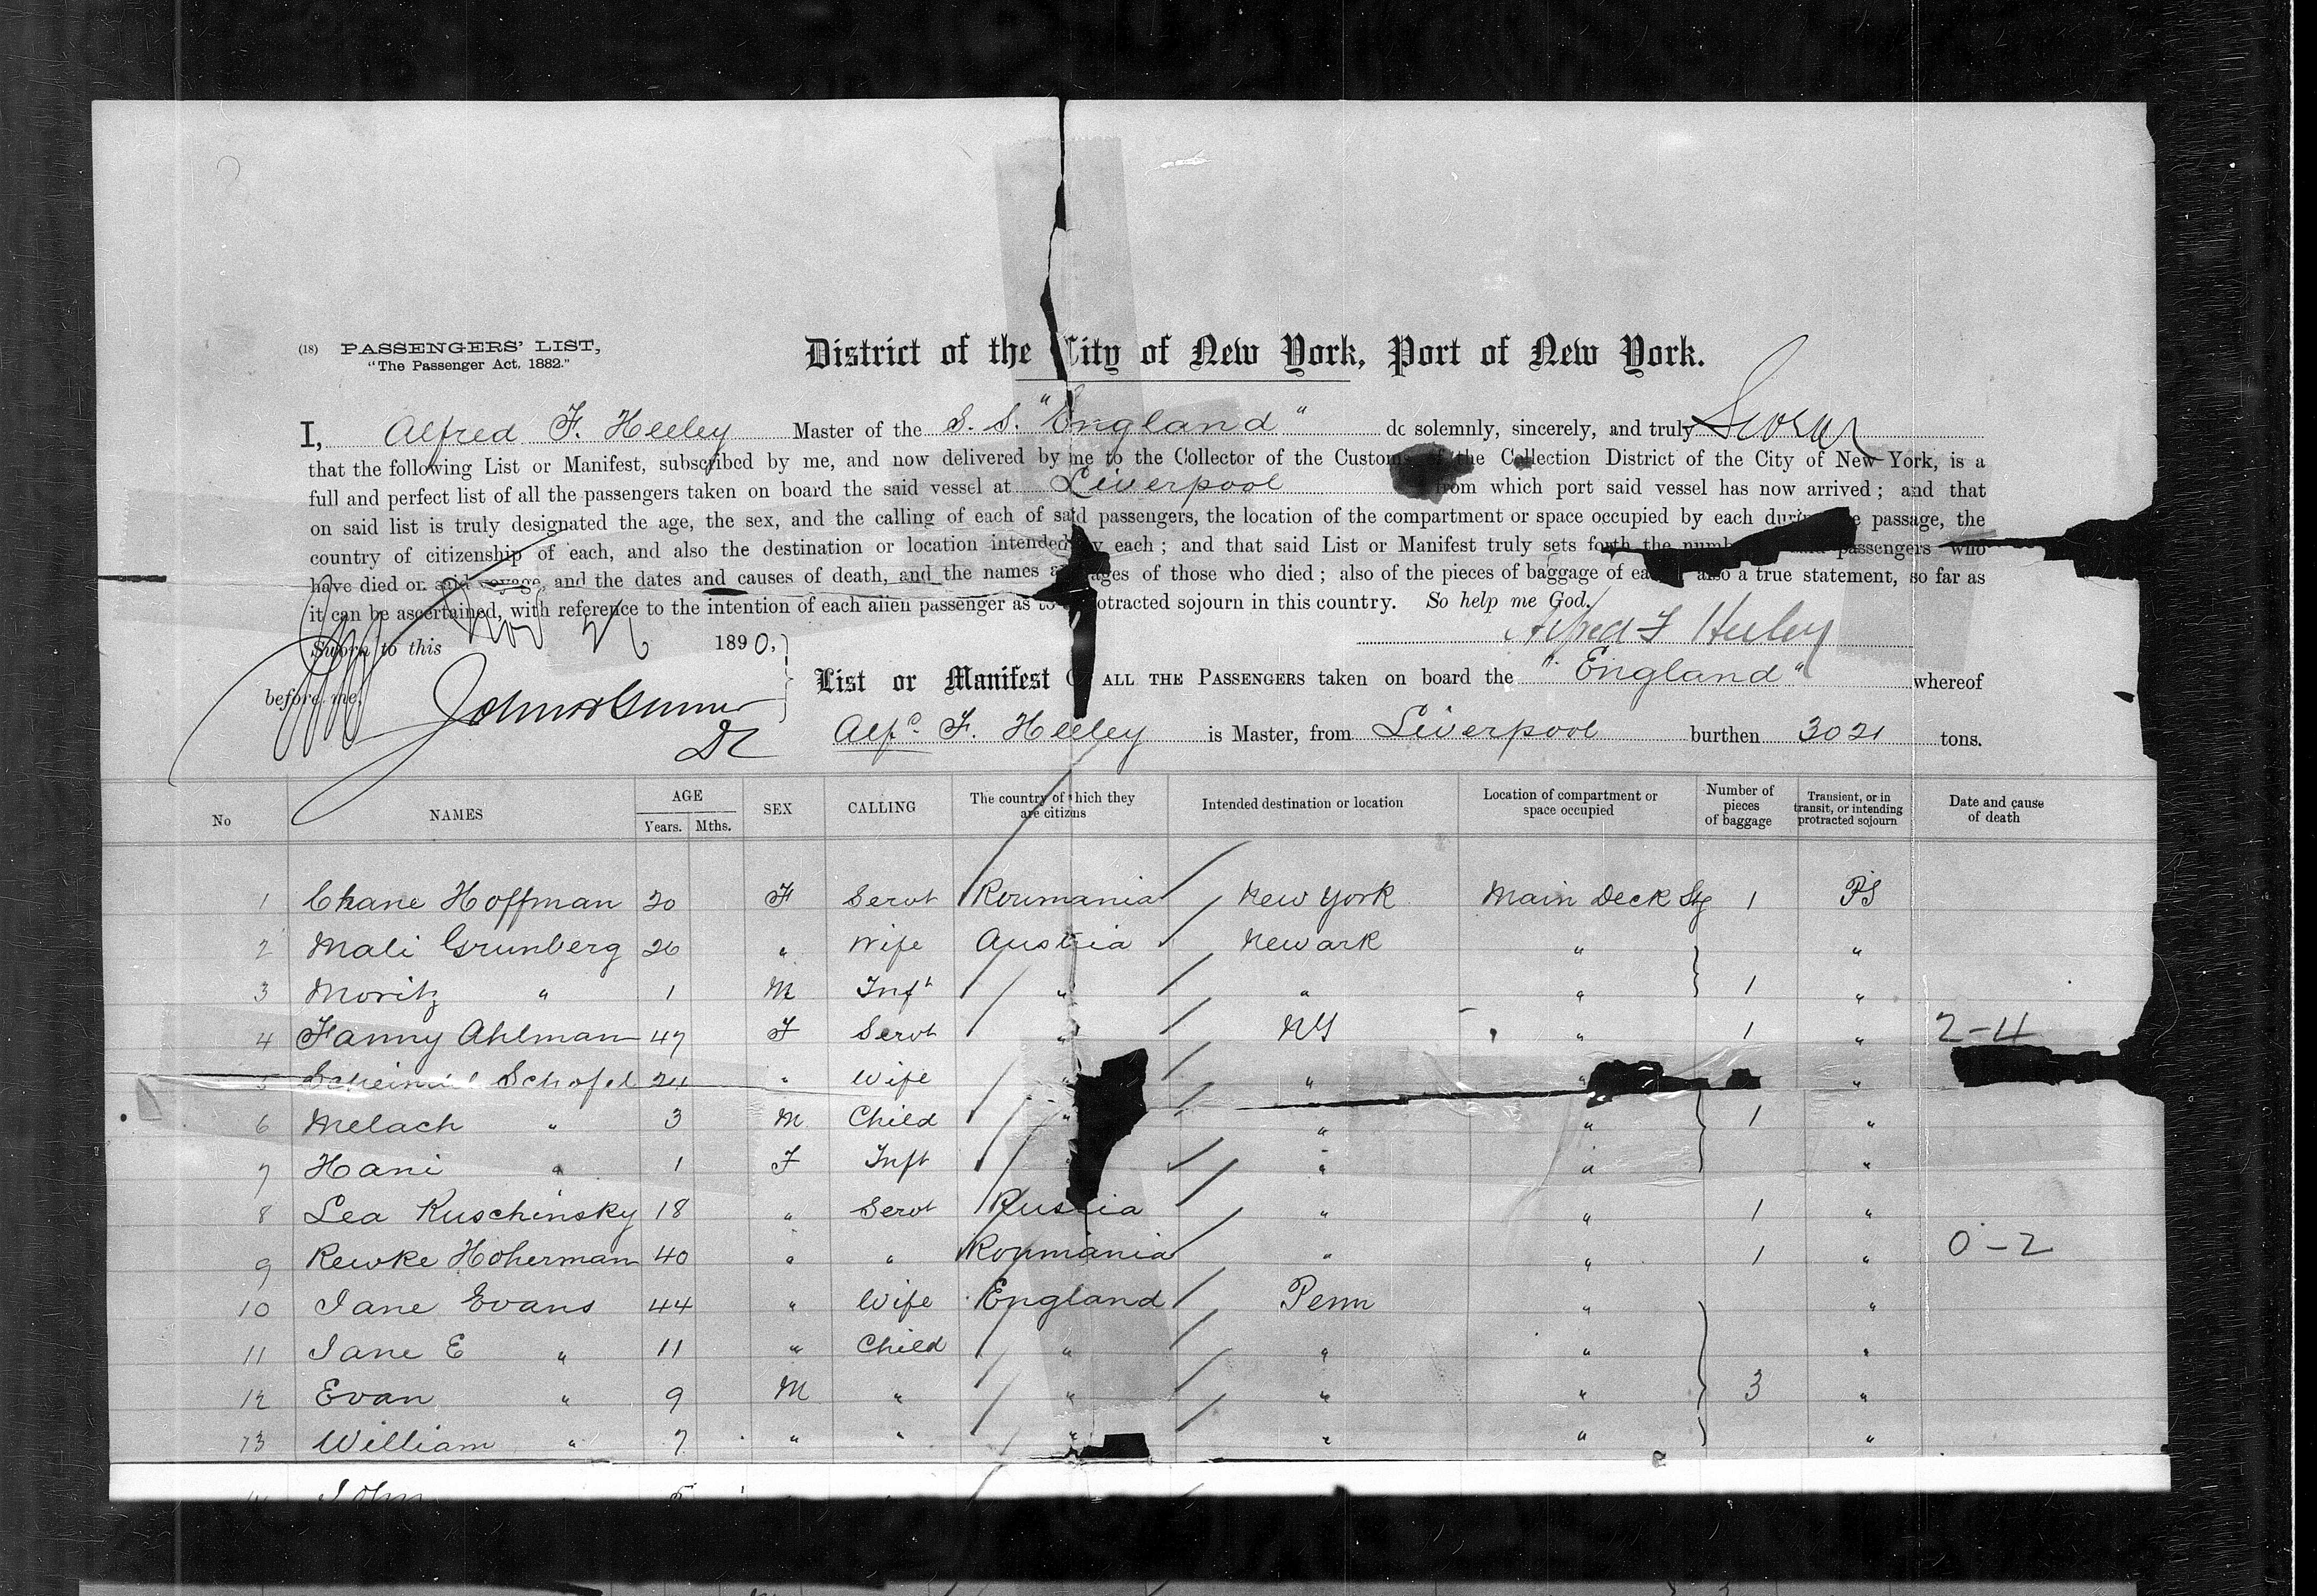 (18) PASSENGERS' LIST,
"The Passenger Act, 1882."
District of the City of New York, Port of New York.
I, Alfred F. Heeley Master of the S. S. "England" do solemnly, sincerely, and truly Swear
that the following List or Manifest, subscribed by me, and now delivered by me to the Collector of the Customs of the Collection District of the City of New York, is a
full and perfect list of all the passengers taken on board the said vessel at Liverpool from which port said vessel has now arrived; and that
on said list is truly designated the age, the sex, and the calling of each of said passengers, the location of the compartment or space occupied by each during the passage, the
country of citizenship of each, and also the destination or location intended by each; and that said List or Manifest truly sets forth the number passengers who
have died on said voyage, and the dates and causes of death, and the names ages of those who died; also of the pieces of baggage of each also a true statement, so far as
it can be ascertained, with reference to the intention of each alien passenger as to protracted sojourn in this country. So help me God.
Sworn to this 1890,
Alfred F Heeley
before me,
List or Manifest ALL THE PASSENGERS taken on board the "England" whereof
Alfd. F. Heeley is Master, from Liverpool burthen 3021 tons.
No NAMES AGE Years. Mths. SEX CALLING The country of which they are citizens Intended destination or location Location of compartment or space occupied Number of pieces of baggage Transient, or in transit, or intending protracted sojourn Date and cause of death
1 Chane Hoffman 20 F Servt Roumania New York Main Deck Stg 1 PS
2 Mali Grunberg 26 " Wife Austria Newark " "
3 Moritz " 1 M Inft " " " 1 "
4 Fanny Ahlman 47 F Servt " NY " 1 " 2-4
5 Schofel 24 " Wife " " " "
6 Melach " 3 M Child " " " 1 "
7 Hani " 1 F Inft " " "
8 Lea Kuschinsky 18 " Servt Russia " " 1 "
9 Rewke Hoherman 40 " " Roumania " " 1 " 0-2
10 Jane Evans 44 " Wife England Penn " "
11 Jane E " 11 " Child " " " "
12 Evan " 9 M " " " " 3 "
13 William " 7 " " " " " "
John